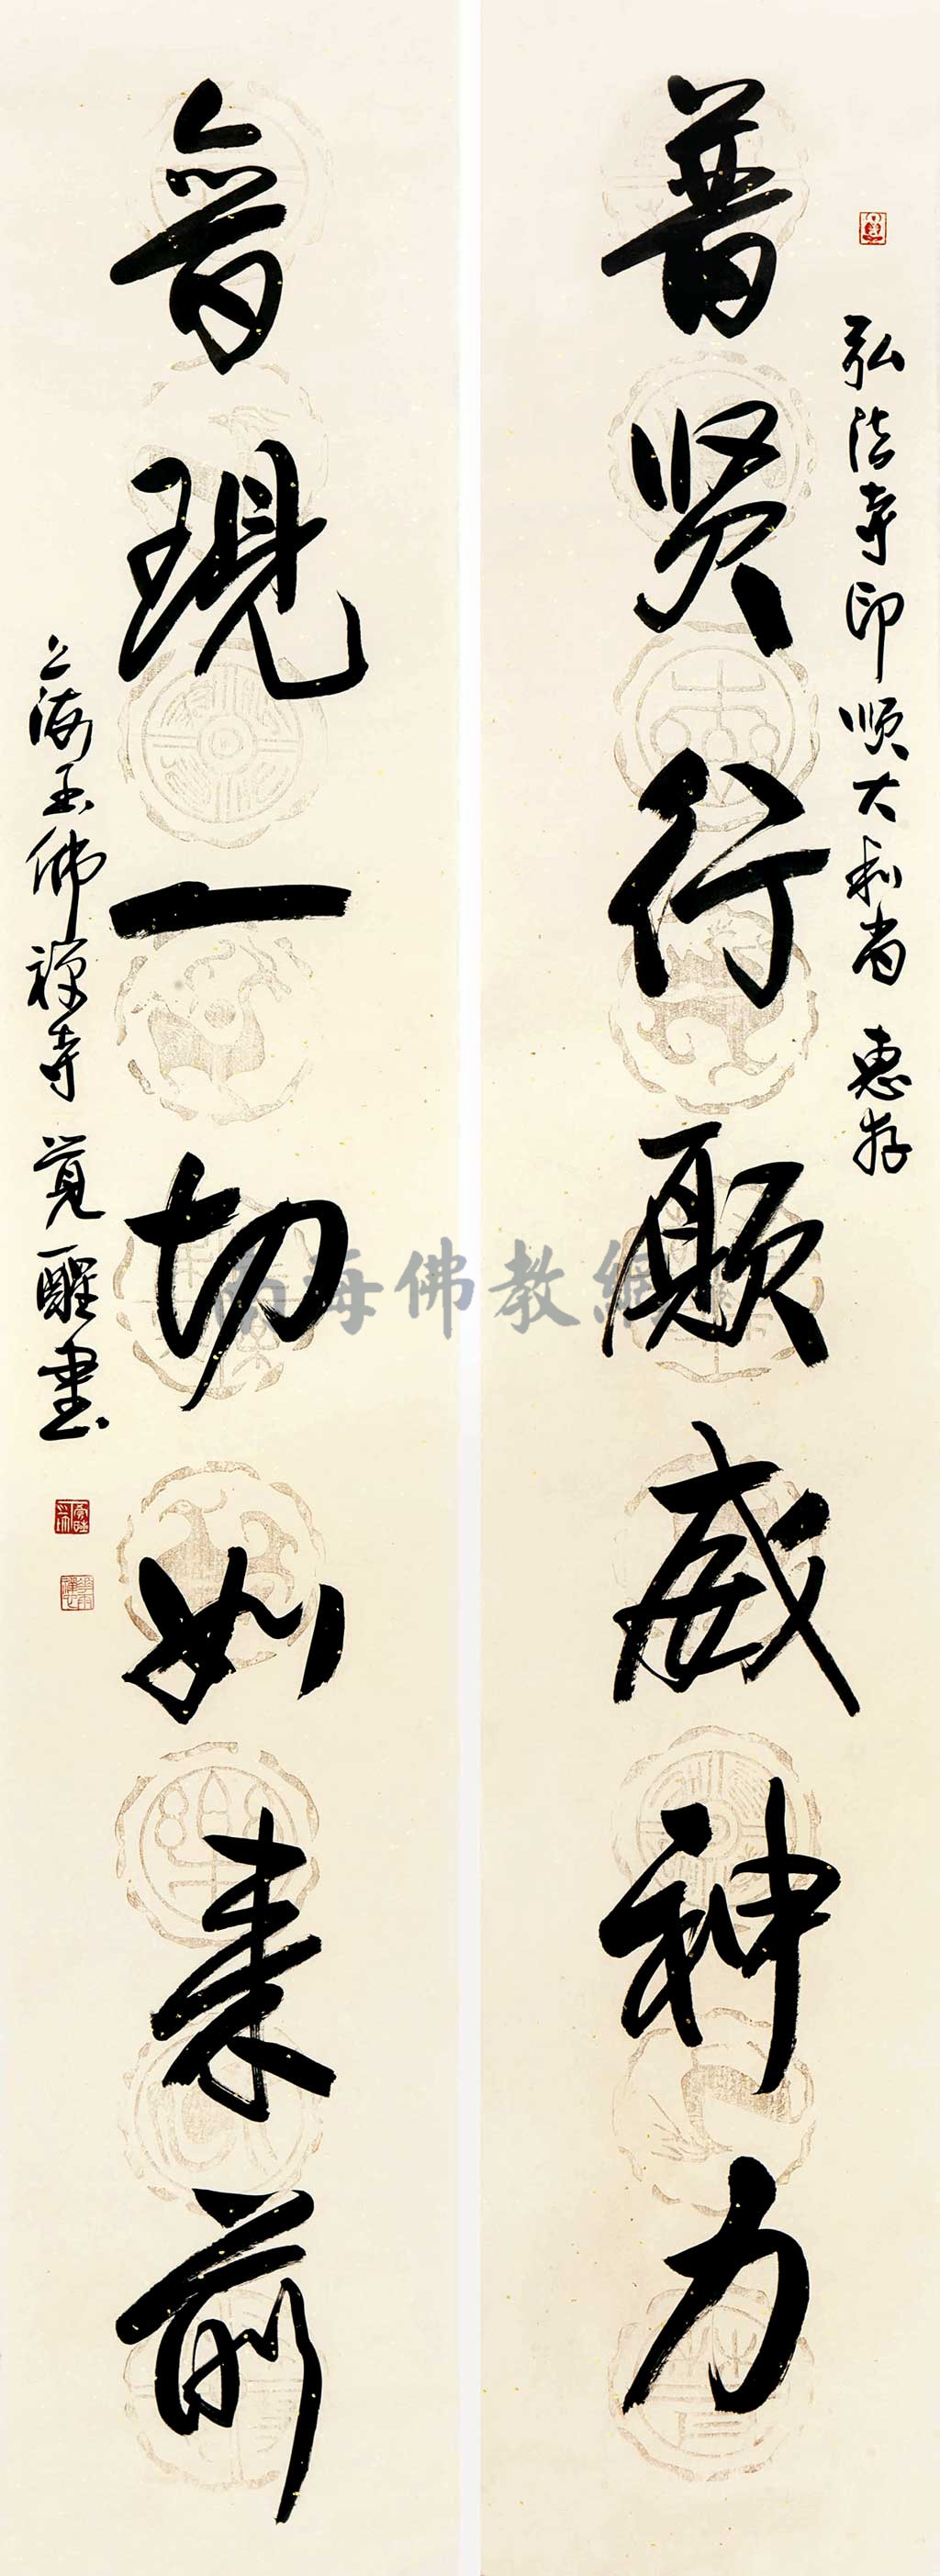 弘法寺印顺大和尚 惠存
普贤行願威神力
普現一切如来前
上海玉佛禅寺 覚醒書
南海佛教網